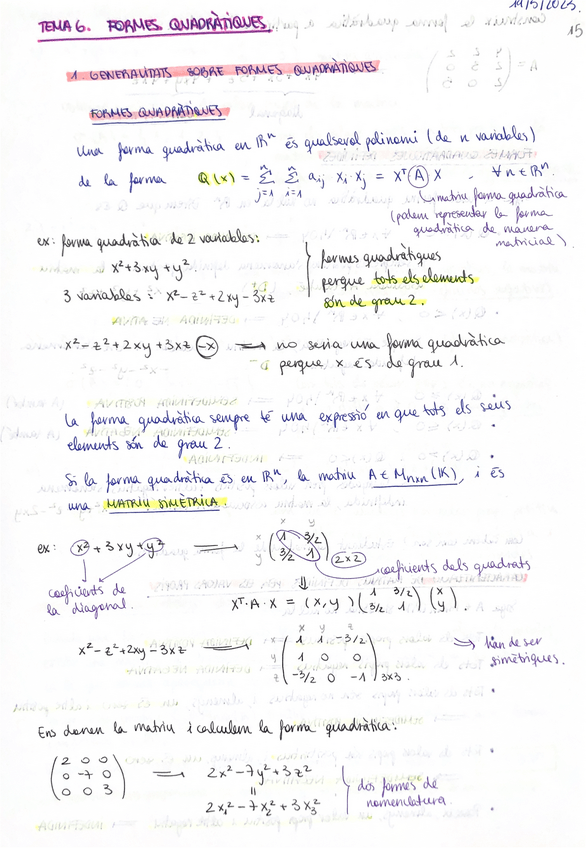 19/5/2023.
15
TEMA 6. FORMES QUADRÀTIQUES.
1. GENERALITATS SOBRE FORMES QUADRÀTIQUES
FORMES QUADRÀTIQUES
Una forma quadràtica en ℝⁿ és qualsevol polinomi (de n variables)
de la forma Q(x) = Σ_{j=1}^{n} Σ_{i=1}^{n} a_ij x_i · x_j = Xᵀ (A) X . ∀ n ∈ ℝⁿ.
matriu forma quadràtica
(podem representar la forma
quadràtica de manera
matricial).
ex: forma quadràtica de 2 variables:
x² + 3xy + y²
3 variables : x² - z² + 2xy - 3xz
formes quadràtiques
perque tots els elements
són de grau 2.
x² - z² + 2xy + 3xz -x → no seria una forma quadràtica
perque x és de grau 1.
La forma quadràtica sempre té una expressió en que tots els seus
elements són de grau 2.
Si la forma quadràtica és en ℝⁿ, la matriu A ∈ Mnxn (K), i és
una MATRIU SIMÈTRICA.
x y
ex: x² + 3xy + y² → x ( 1 3/2
y 3/2 1 ) 2x2
coeficients dels quadrats
coeficients de
la diagonal.
⇓
Xᵀ · A · X = (x, y) ( 1 3/2
3/2 1 ) ( x
y ).
x y z
x² - z² + 2xy - 3xz → x ( 1 1 -3/2
y 1 0 0
z -3/2 0 -1 ) 3x3.
⇒ han de ser
simètriques.
Ens donen la matriu i calculem la forma quadràtica:
( 2 0 0
0 -7 0
0 0 3 ) → 2x² - 7y² + 3z²
=
2x₁² - 7x₂² + 3x₃²
dos formes de
nomenclatura.